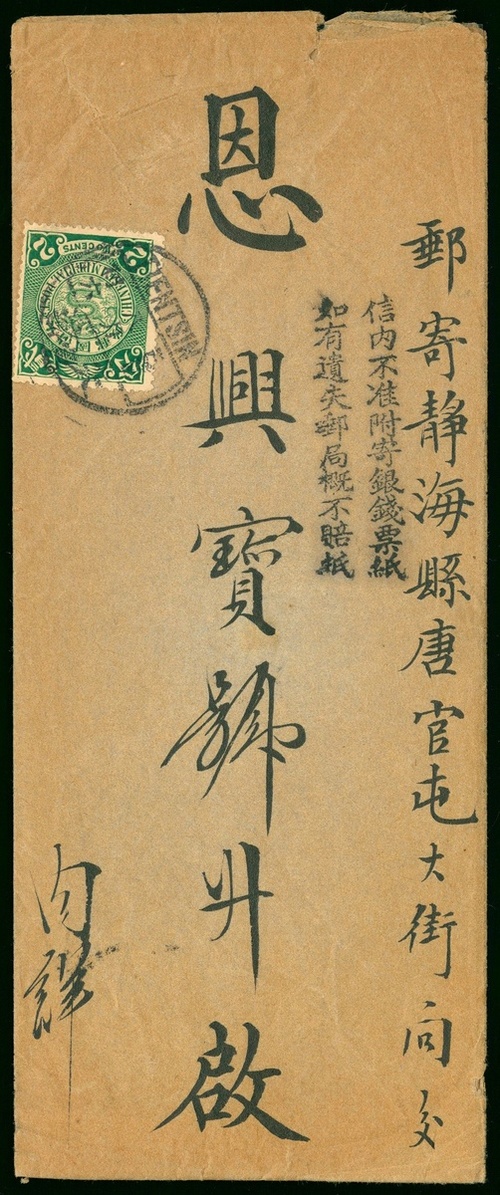 郵寄靜海縣唐官屯大街向交
信內不准附寄銀錢票紙
如有遺失郵局概不賠紙
恩興寶號升啟
內詳
2 CENTS 2
TIENTSIN